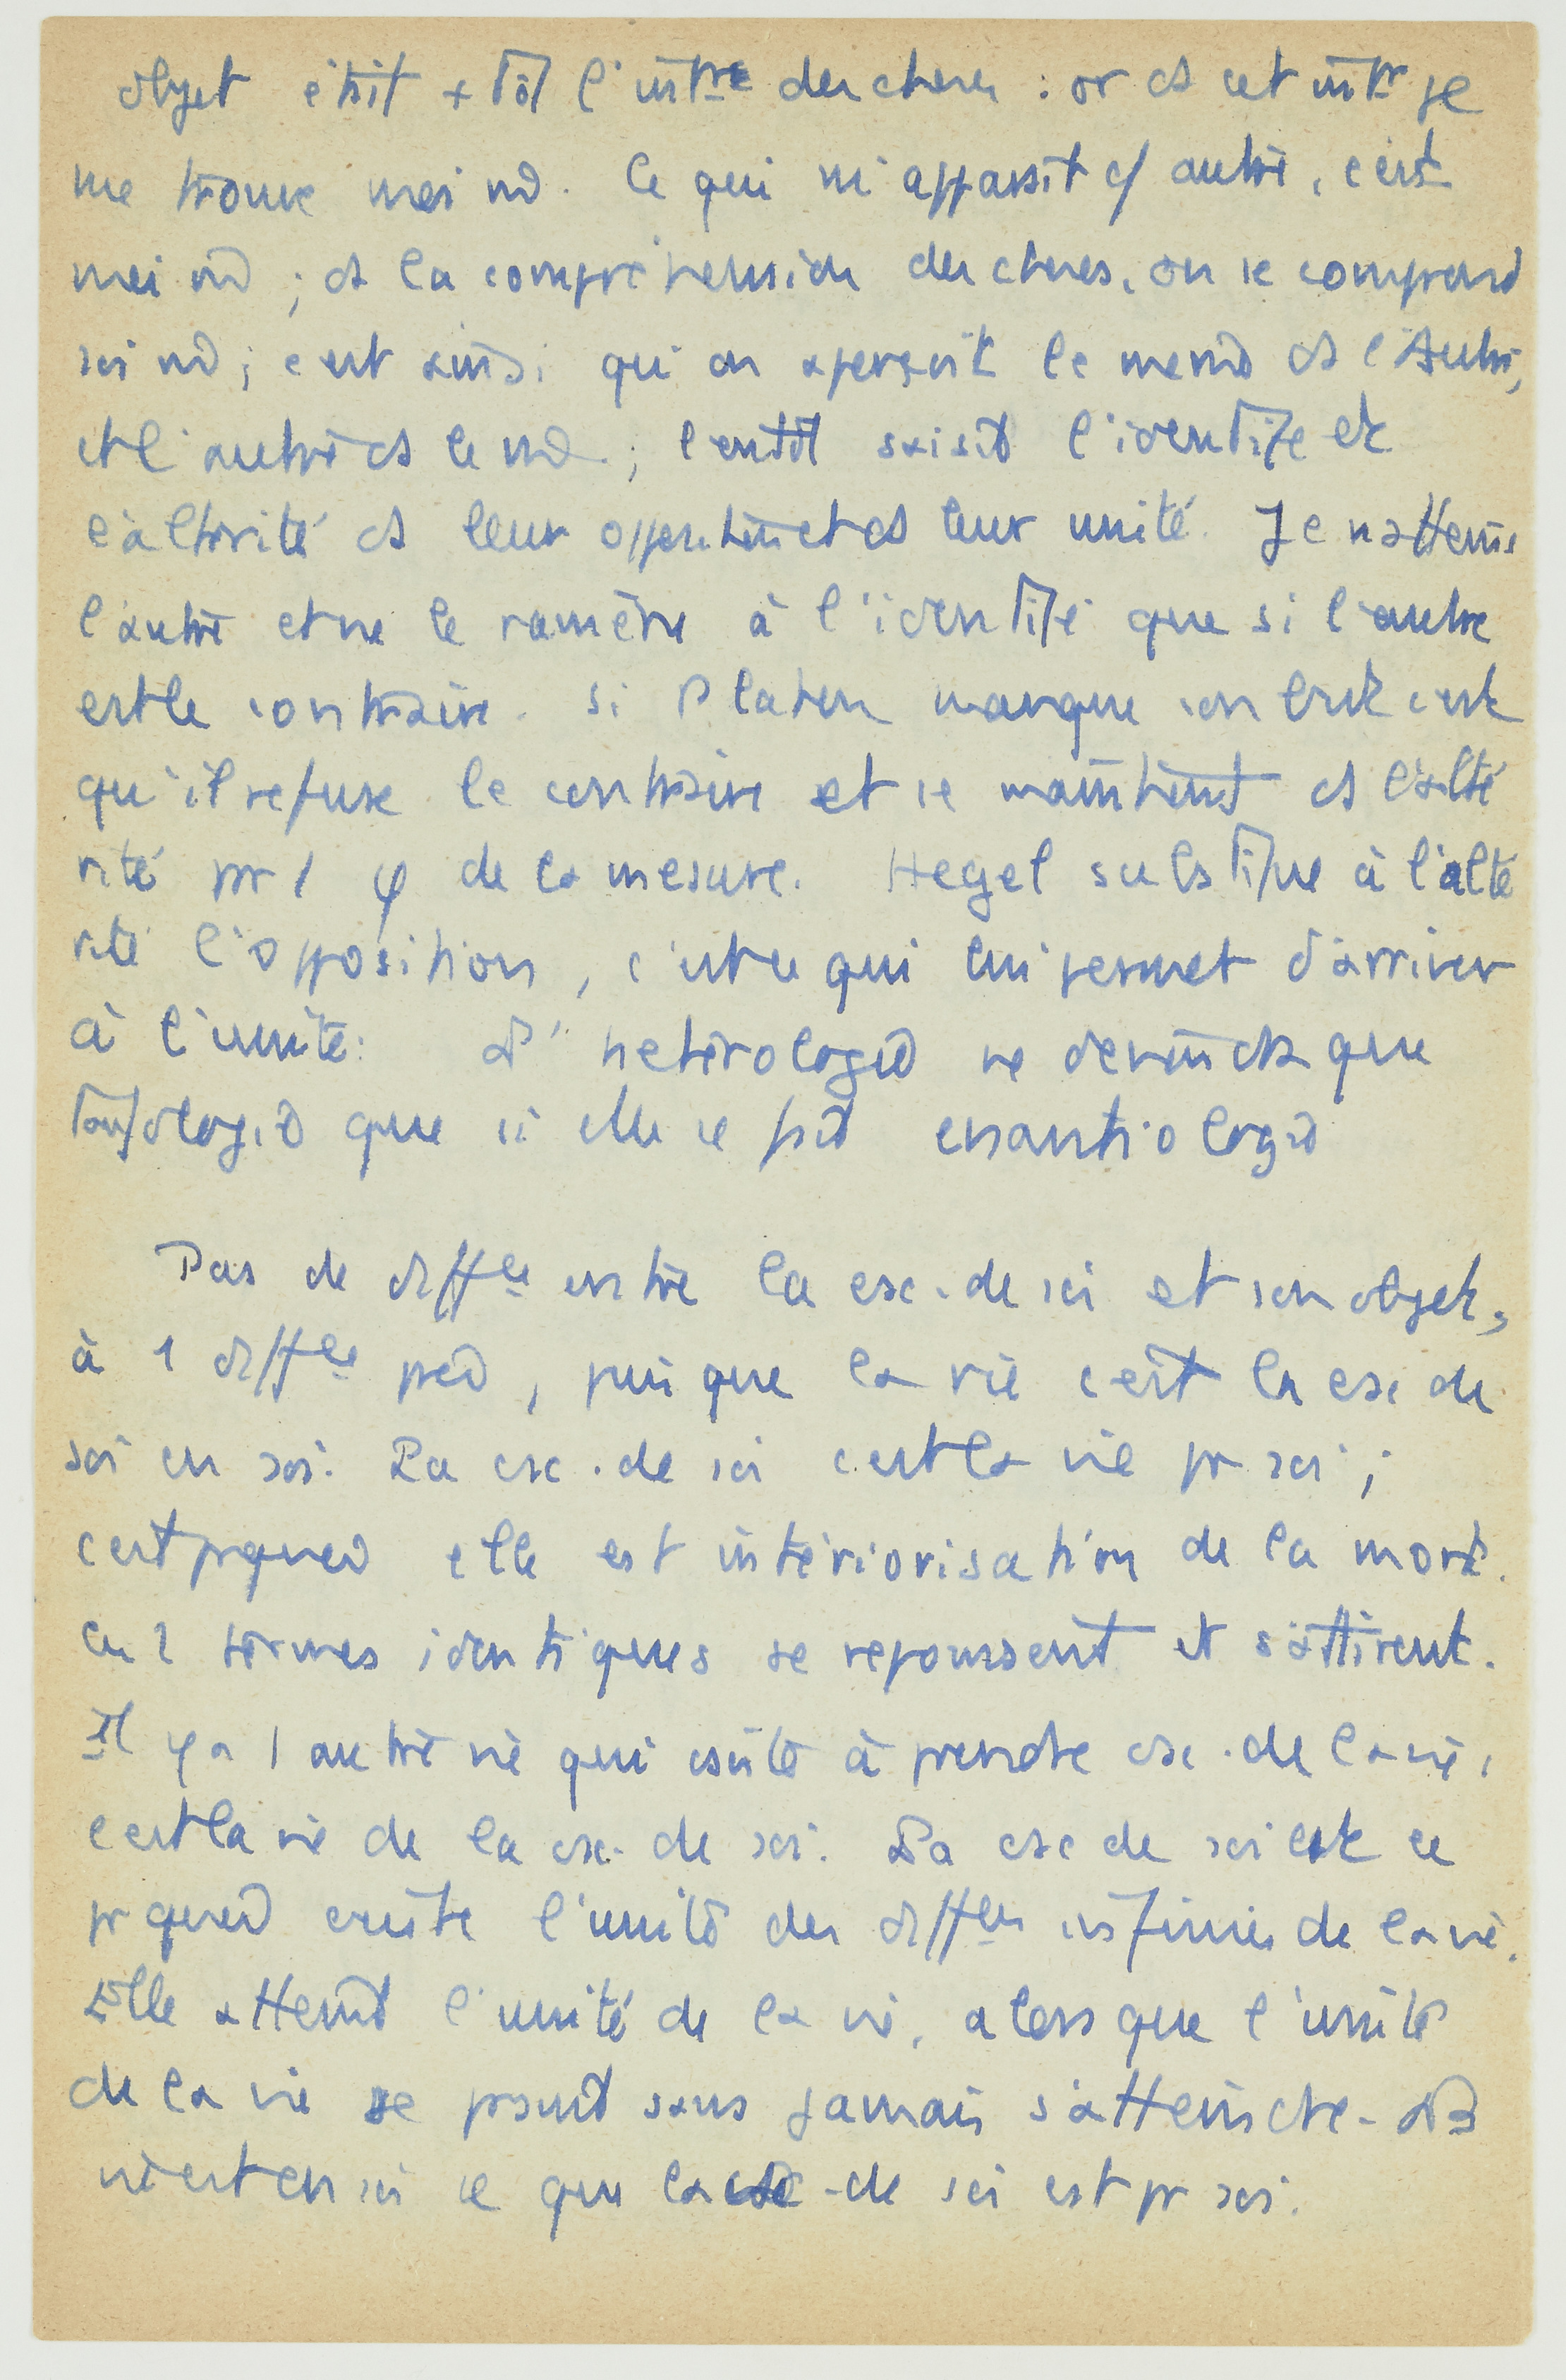 objet était + tôt l'intre des choses : or ds cet intr je
me trouve moi mê. Ce qui m'apparaît c/ autre, c'est
moi mê ; ds la compréhension des choses, on se comprend
soi mê ; c'est ainsi qu'on aperçoit le même ds l'Autre,
et l'autre ds le mê ; l'entdt saisit l'identité et
l'altérité ds leur opposition et ds leur unité. Je n'atteins
l'autre et ne le ramène à l'identité que si l'autre
est le contraire. Si Platon manque son but c'est
qu'il refuse le contraire et se maintient ds l'alté
rité pr 1 φ de la mesure. Hegel substitue à l'alté
rité l'opposition, c'est ce qui lui permet d'arriver
à l'unité. L'hétérologie ne devient que
tautologie que si elle se fait enantiologie

Pas de diffce entre la csc. de soi et son objet,
à 1 diffce près, puisque la vie c'est la csc de
soi en soi. La csc. de soi c'est la vie pr soi ;
c'est prquoi elle est intériorisation de la mort.
Ces 2 termes identiques se repoussent et s'attirent.
Il y a 1 autre vie qui existe à prendre csc. de la vie,
c'est la vie de la csc. de soi. La csc de soi est ce
pr quoi existe l'unité des diffces infinies de la vie.
Elle atteint l'unité de la vie, alors que l'unité
de la vie se poursuit sans jamais s'atteindre. La
vie est en soi ce que la csc. de soi est pr soi.